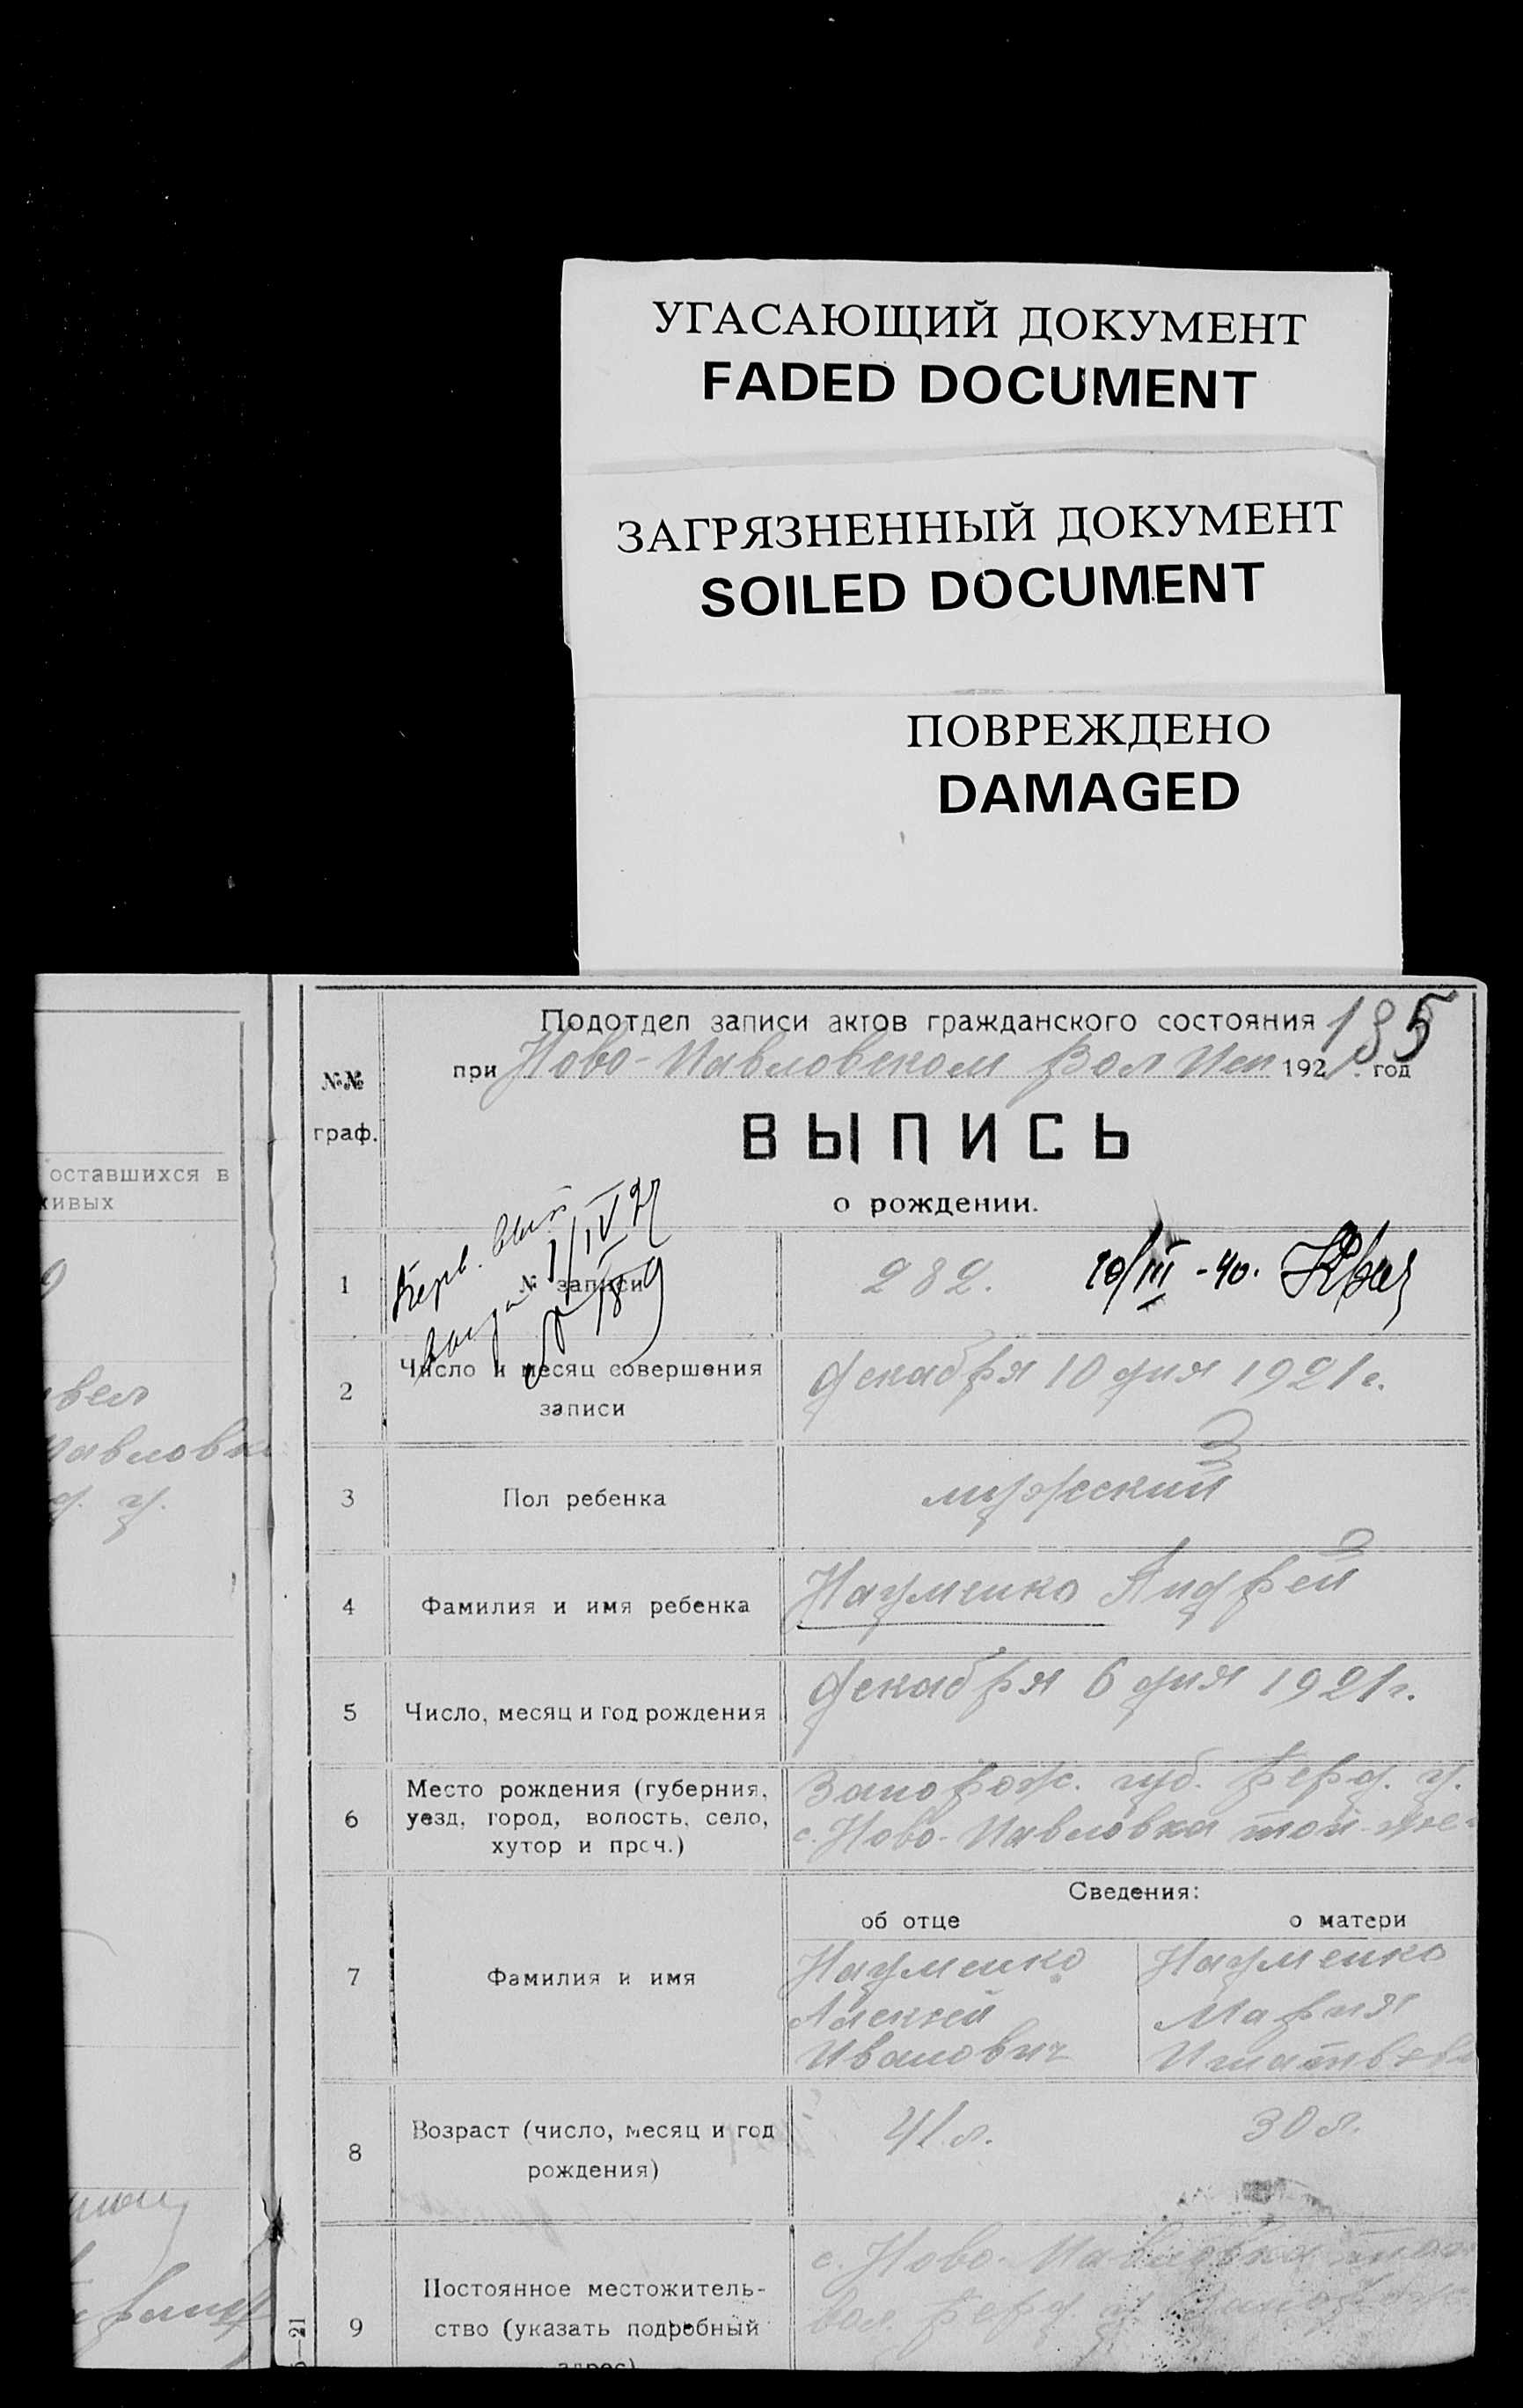 УГАСАЮЩИЙ ДОКУМЕНТ
FADED DOCUMENT
ЗАГРЯЗНЕННЫЙ ДОКУМЕНТ
SOILED DOCUMENT
ПОВРЕЖДЕНО
DAMAGED
оставшихся в
живых
вел
Павловка
№№
граф.
Подотдел записи актов гражданского состояния
при Ново-Павловском Вол Исп 1921 год
195
ВЫПИСЬ
о рождении.
1 № записи 282. 10/III -40.
1/IV
2 Число и месяц совершения
записи
декабря 10 дня 1921 г.
3 Пол ребенка мужеский
4 Фамилия и имя ребенка Науменко Андрей
5 Число, месяц и год рождения декабря 6 дня 1921 г.
6 Место рождения (губерния,
уезд, город, волость, село,
хутор и проч.)
Запорож. губ. Берд. у.
с. Ново-Павловка той-же
Сведения:
об отце о матери
7 Фамилия и имя
Науменко Науменко
Алексей Мария
Иванович
8 Возраст (число, месяц и год
рождения)
41 л. 30 л.
9 Постоянное местожитель-
ство (указать подробный
адрес)
с. Ново-Павловка той
вол. Берд. у. Запорож
—21